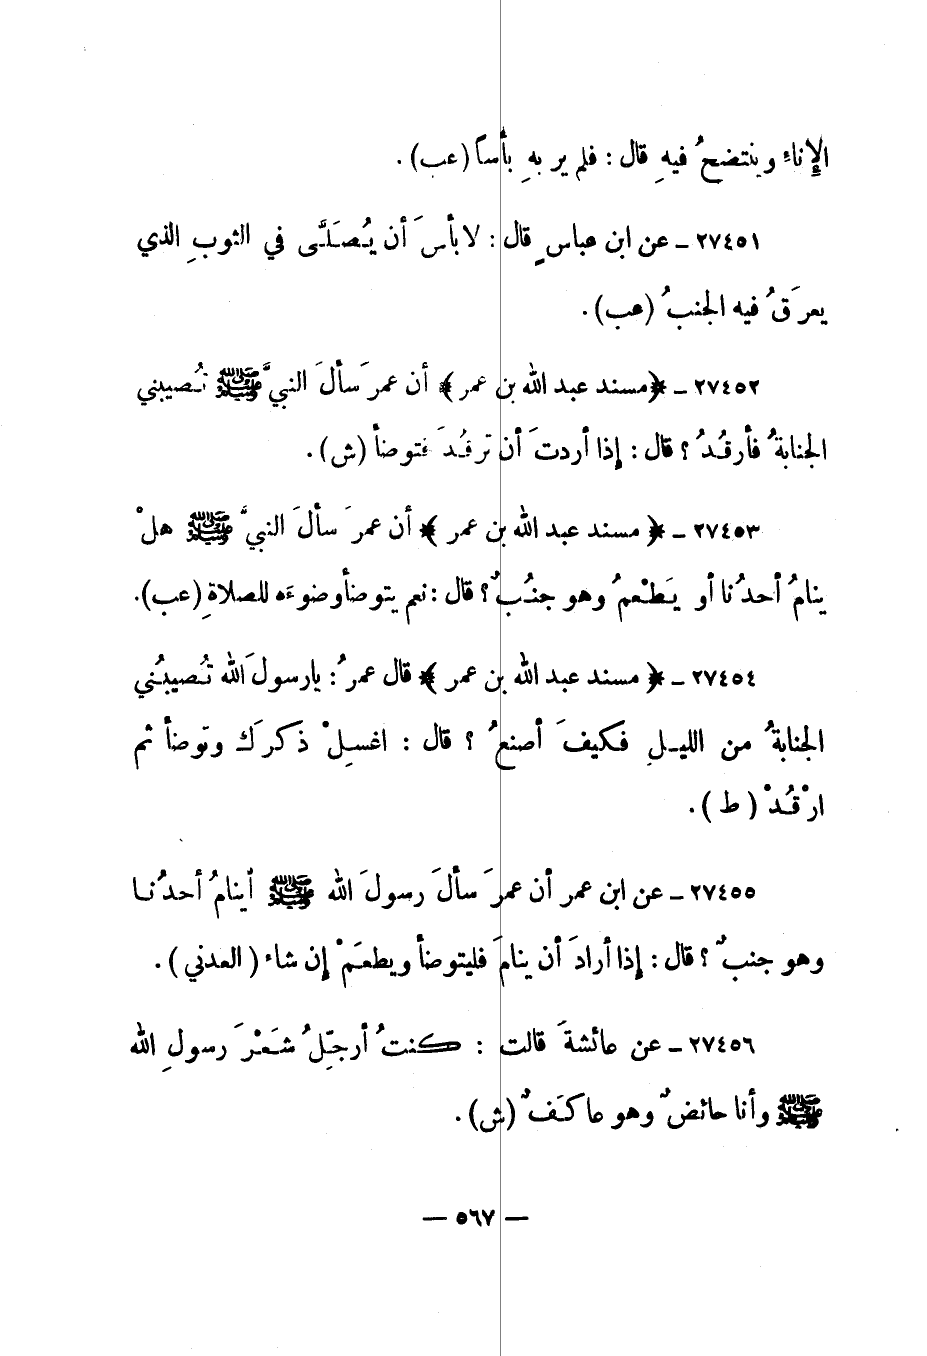 الإناءِ وينتضحُ فيهِ قال : فلم ير بهِ بأساً (عب) .
٢٧٤٥١ ـ عن ابن عباسٍ قال : لا بأسَ أن يُصَلَّى في الثوبِ الذي
يعرَقُ فيه الجنبُ (عب) .
٢٧٤٥٢ ـ ﴿مسند عبد الله بن عمر﴾ أن عمرَ سألَ النبيَّ ﷺ تُصيبني
الجنابةُ فأرقُدُ ؟ قال : إذا أردتَ أن ترقُدَ فتوضأ (ش) .
٢٧٤٥٣ ـ ﴿ مسند عبد الله بن عمر ﴾ أن عمرَ سألَ النبيَّ ﷺ هلْ
ينامُ أحدُنا أو يَطْعمُ وهو جنُبٌ ؟ قال : نعم يتوضأ وضوءَه للصلاةِ (عب).
٢٧٤٥٤ ـ ﴿ مسند عبد الله بن عمر ﴾ قال عمرُ : يا رسولَ الله تُصيبُني
الجنابةُ من الليلِ فكيفَ أصنعُ ؟ قال : اغسِلْ ذكرَك وتوضأ ثم
ارْقُدْ ( ط ) .
٢٧٤٥٥ ـ عن ابن عمر أن عمرَ سألَ رسولَ الله ﷺ أينامُ أحدُنا
وهو جنبٌ ؟ قال : إذا أرادَ أن ينامَ فليتوضأ ويطعَمْ إن شاء ( العدني ) .
٢٧٤٥٦ ـ عن عائشةَ قالت : كنتُ أرجِّلُ شَعْرَ رسولِ الله
ﷺ وأنا حائضٌ وهو عاكَفٌ (ش) .
— ٥٦٧ —